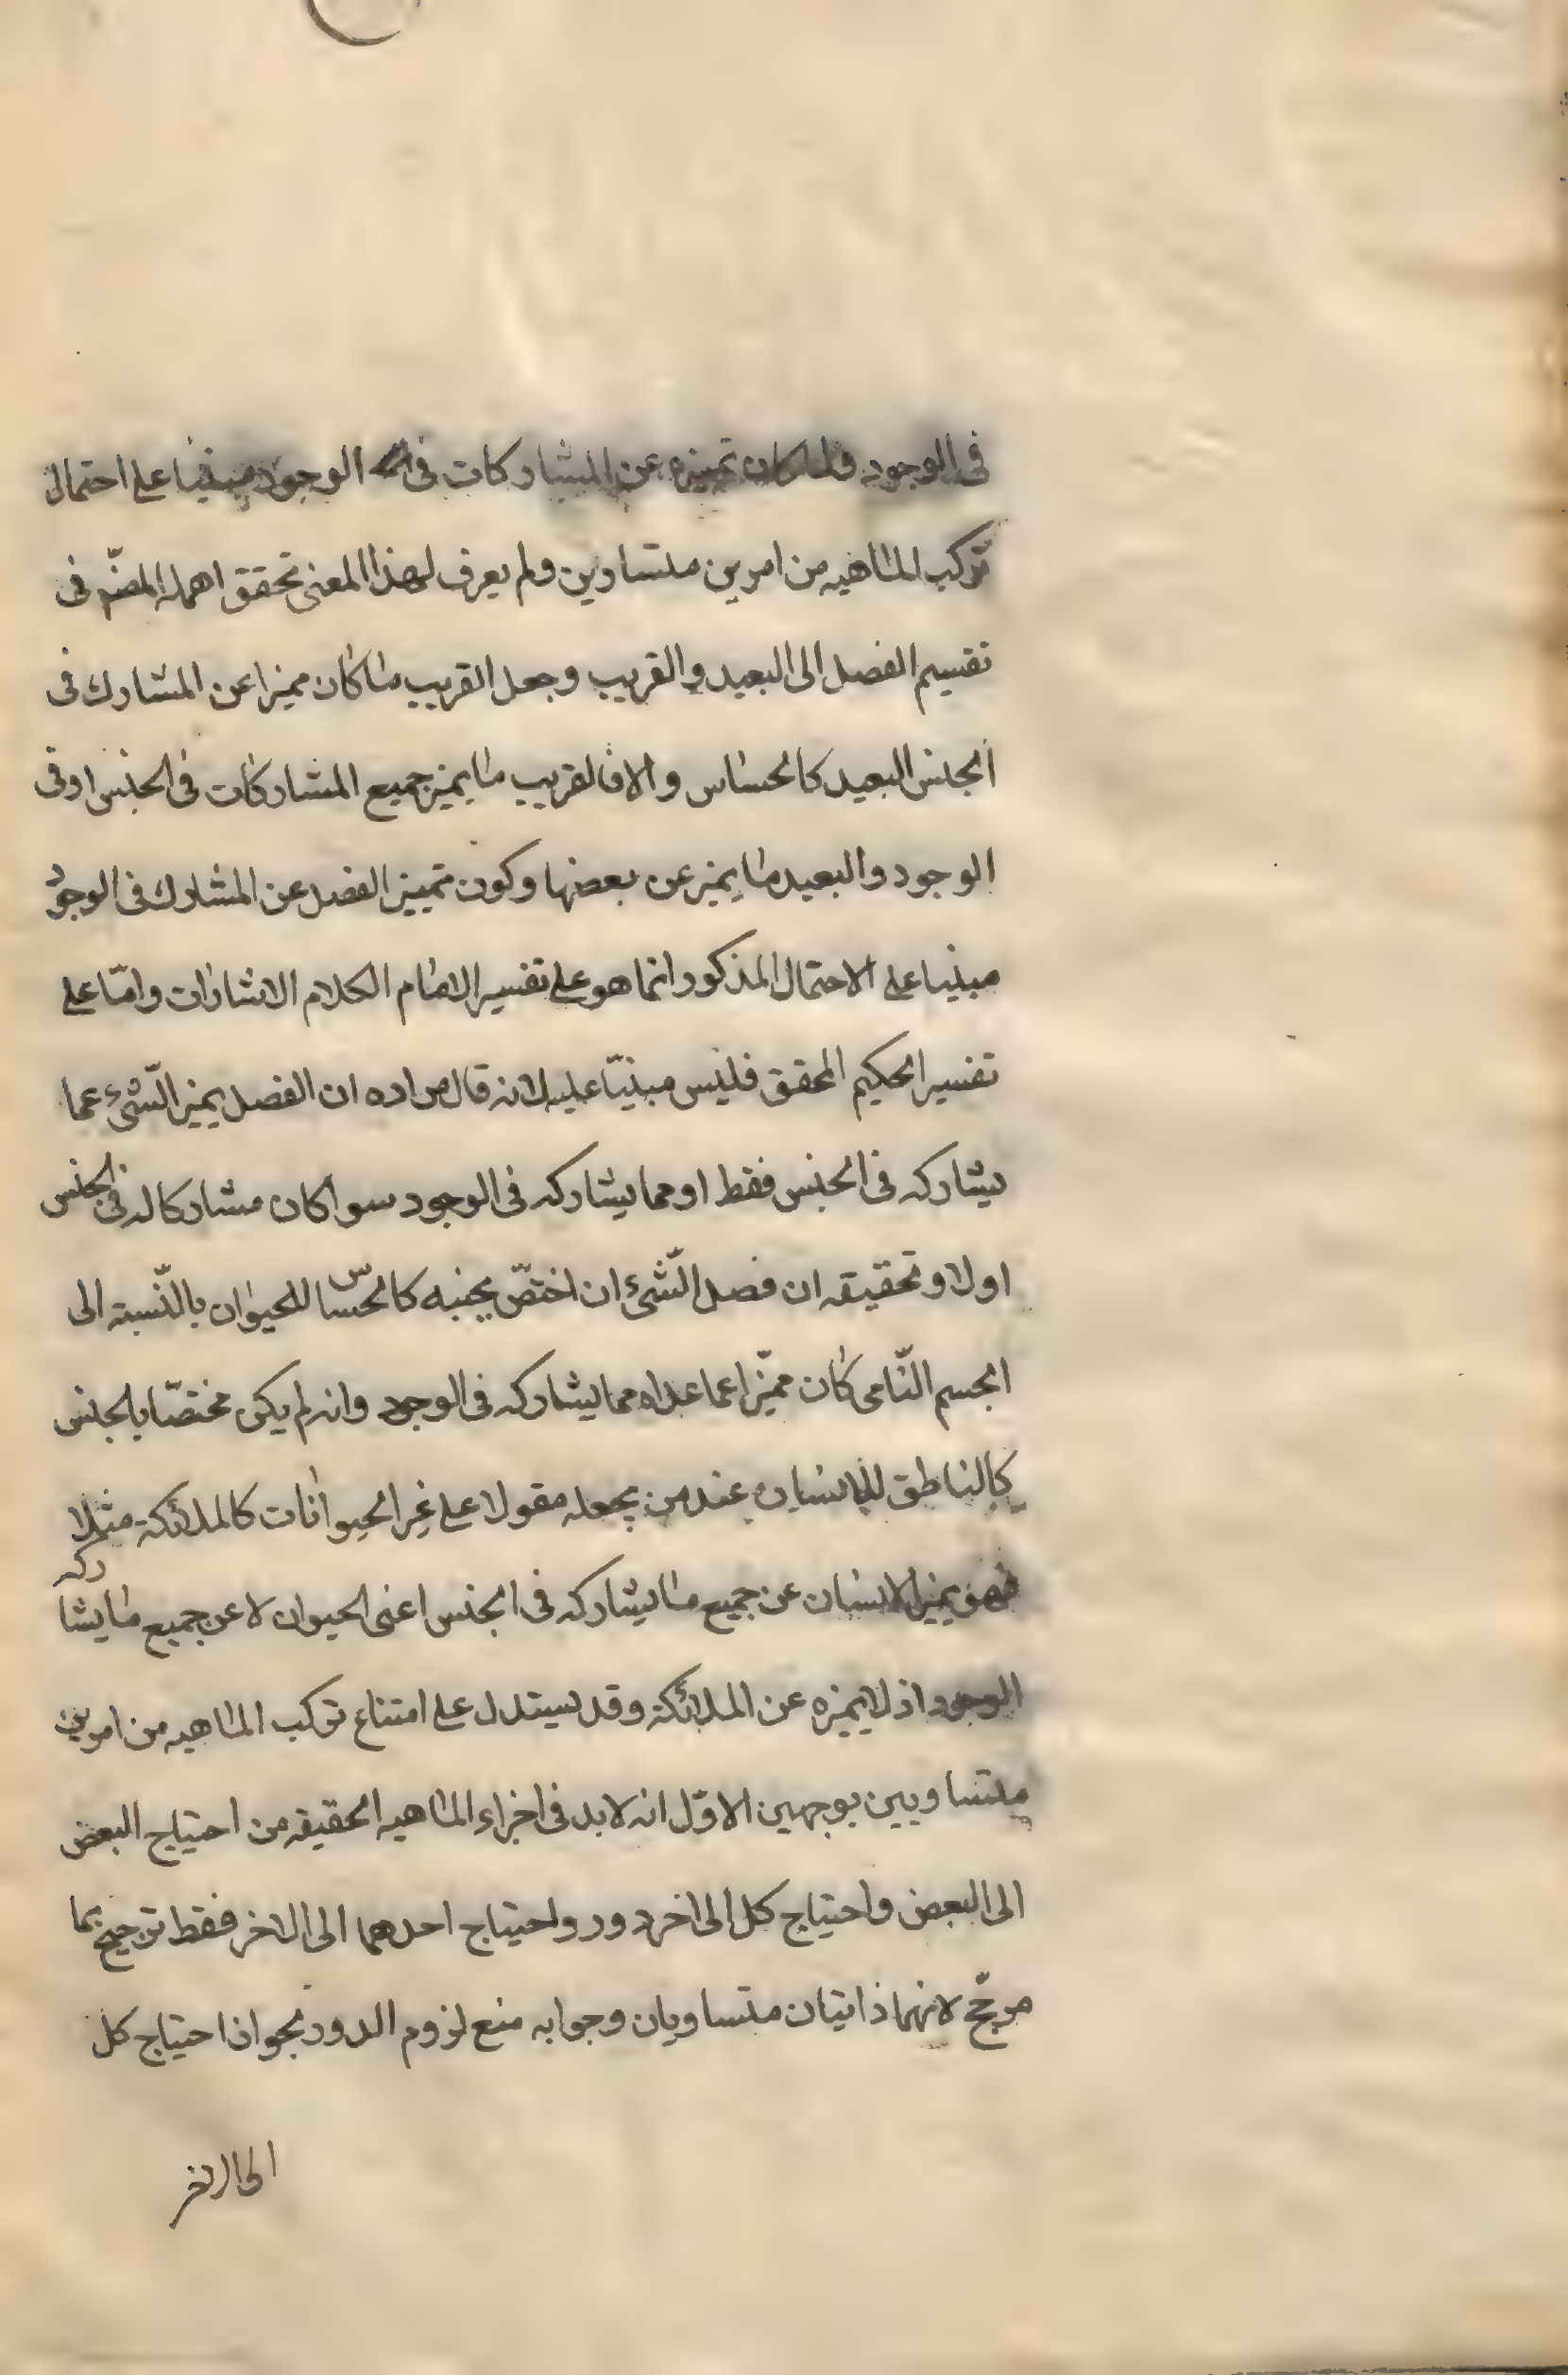 فى الوجود ولما كان تميزه عن المشاركات فى الوجود مبنيا على احتمال
تركب الماهيه من امرين متساوين ولم يعرف لهذا المعنى تحقق اهمله المصنّم فى
تقسيم الفصل الى البعيد والقريب وجعل القريب ماكان مميزا عن المشارك فى
الجنس البعيد كالحساس والا فالقريب ما يميز جميع المشاركات فى الجنس او فى
الوجود والبعيد ما يميز عن بعضها وكون تمييز الفصل عن المشارك فى الوجود
مبنيا على الاحتمال المذكور انما هو على تفسير الامام الكلام الاشارات وامّا على
تفسير الحكيم المحقق فليس مبنيّا عليه لانه قال مراده ان الفصل يميز الشّئ عما
يشاركه فى الجنس فقط او مما يشاركه فى الوجود سوا كان مشاركا له فى الجنس
اولا وتحقيقه ان فصل الشّئ ان اختصّ بجنسه كالحساس للحيوان بالنّسبته الى
الجسم النّامى كان مميّزا عما عداه مما يشاركه فى الوجود وانه لم يكن مختصّا بالجنس
كالناطق للانسان عند من يجعله مقولا على غير الحيوانات كالملائكة مثلا
فهو يميز الانسان عن جميع ما يشاركه فى الجنس اعنى الحيوان لا عن جميع ما يشاركه
الوجود اذ لا يميزه عن الملائكة وقد يستدل على امتناع تركب الماهيه من امرين
متساويين بوجهين الاوّل انه لا بد فى اجزاء الماهيه الحقيقه من احتياج البعض
الى البعض واحتياج كل الى اخر دور واحتياج احدهما الى الاخر فقط ترجيح بما
مرجّح لانهما ذاتيان متساويان وجوابه منع لزوم الدور بجواز احتياج كل
الى الاخر